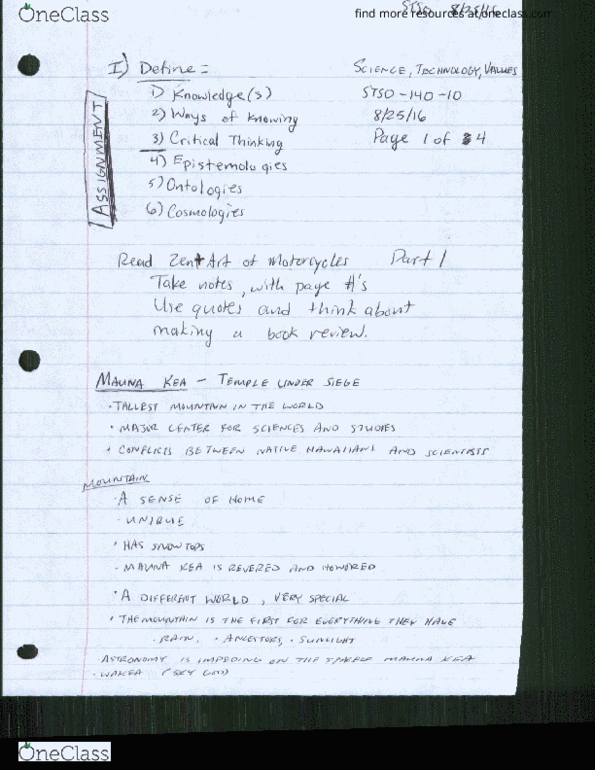 OneClass
find more resources at oneclass.com
STSO 8/25/16
I) Define:
Science, Technology, Values
1) Knowledge(s)
STSO-140-10
2) Ways of Knowing
8/25/16
3) Critical Thinking
Page 1 of 4
4) Epistemologies
5) Ontologies
6) Cosmologies
ASSIGNMENT
Read Zen + Art of Motorcycles Part 1
Take notes, with page #'s
Use quotes and think about
making a book review.
MAUNA KEA - TEMPLE UNDER SIEGE
· TALLEST MOUNTAIN IN THE WORLD
· MAJOR CENTER FOR SCIENCES AND STUDIES
· CONFLICTS BETWEEN NATIVE HAWAIIANS AND SCIENTISTS
MOUNTAIN
· A SENSE OF HOME
- UNIQUE
· HAS SNOW TOPS
- MAUNA KEA IS REVERED AND HONORED
· A DIFFERENT WORLD, VERY SPECIAL
· THE MOUNTAIN IS THE FIRST FOR EVERYTHING THEY HAVE
· RAIN, · ANCESTORS, · SUNLIGHT
· ASTRONOMY IS IMPEDING ON THE MAUNA KEA
· WAKEA (SKY GOD)
OneClass